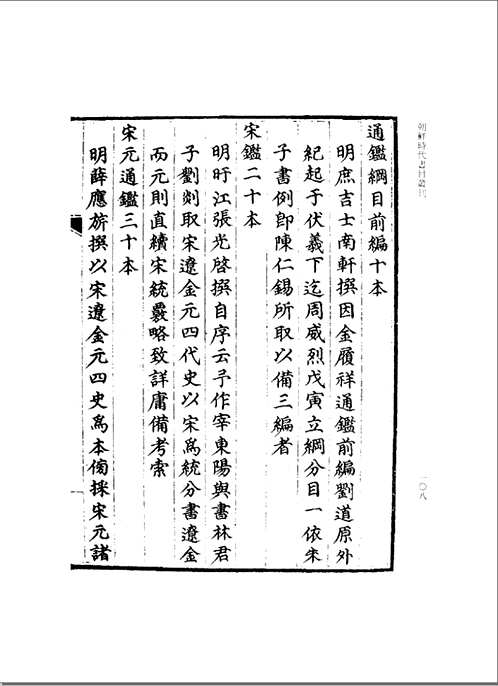 朝鮮時代書目叢刊
通鑑綱目前編十本
明庶吉士南軒撰因金履祥通鑑前編劉道原外
紀起于伏羲下迄周威烈戊寅立綱分目一依朱
子書例卽陳仁錫所取以備三編者
宋鑑二十本
明旴江張光啓撰自序云予作宰東陽與書林君
子劉剡取宋遼金元四代史以宋爲統分書遼金
而元則直續宋統覈略致詳庸備考索
宋元通鑑三十本
明薛應旂撰以宋遼金元四史爲本傍採宋元諸
一〇八